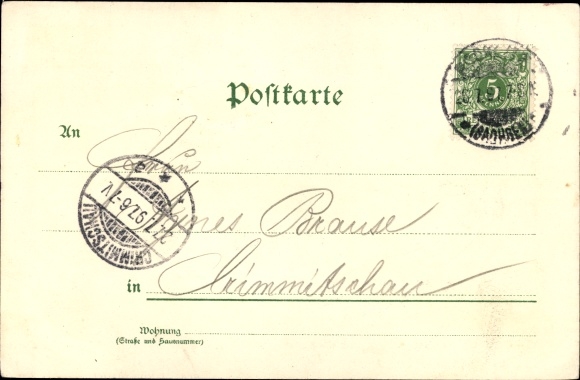 Postkarte
5
(SACHSEN)
An
Herrn
Brause
CRIMMITSCHAU
27/7 97
6-7 V.
in Crimmitschau
Wohnung
(Straße und Hausnummer)